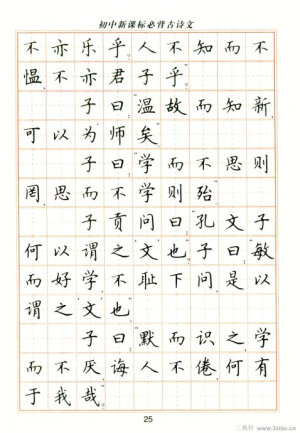 初中新课标必背古诗文
不亦乐乎？人不知而不
愠，不亦君子乎？”
子曰：“温故而知新，
可以为师矣。”
子曰：“学而不思则
罔，思而不学则殆。”
子贡问曰：“孔文子
何以谓之‘文’也？”子曰：“敏
而好学，不耻下问，是以
谓之‘文’也。”
子曰：“默而识之，学
而不厌，诲人不倦，何有
于我哉？”
25
三典轩 www.32dx.cn